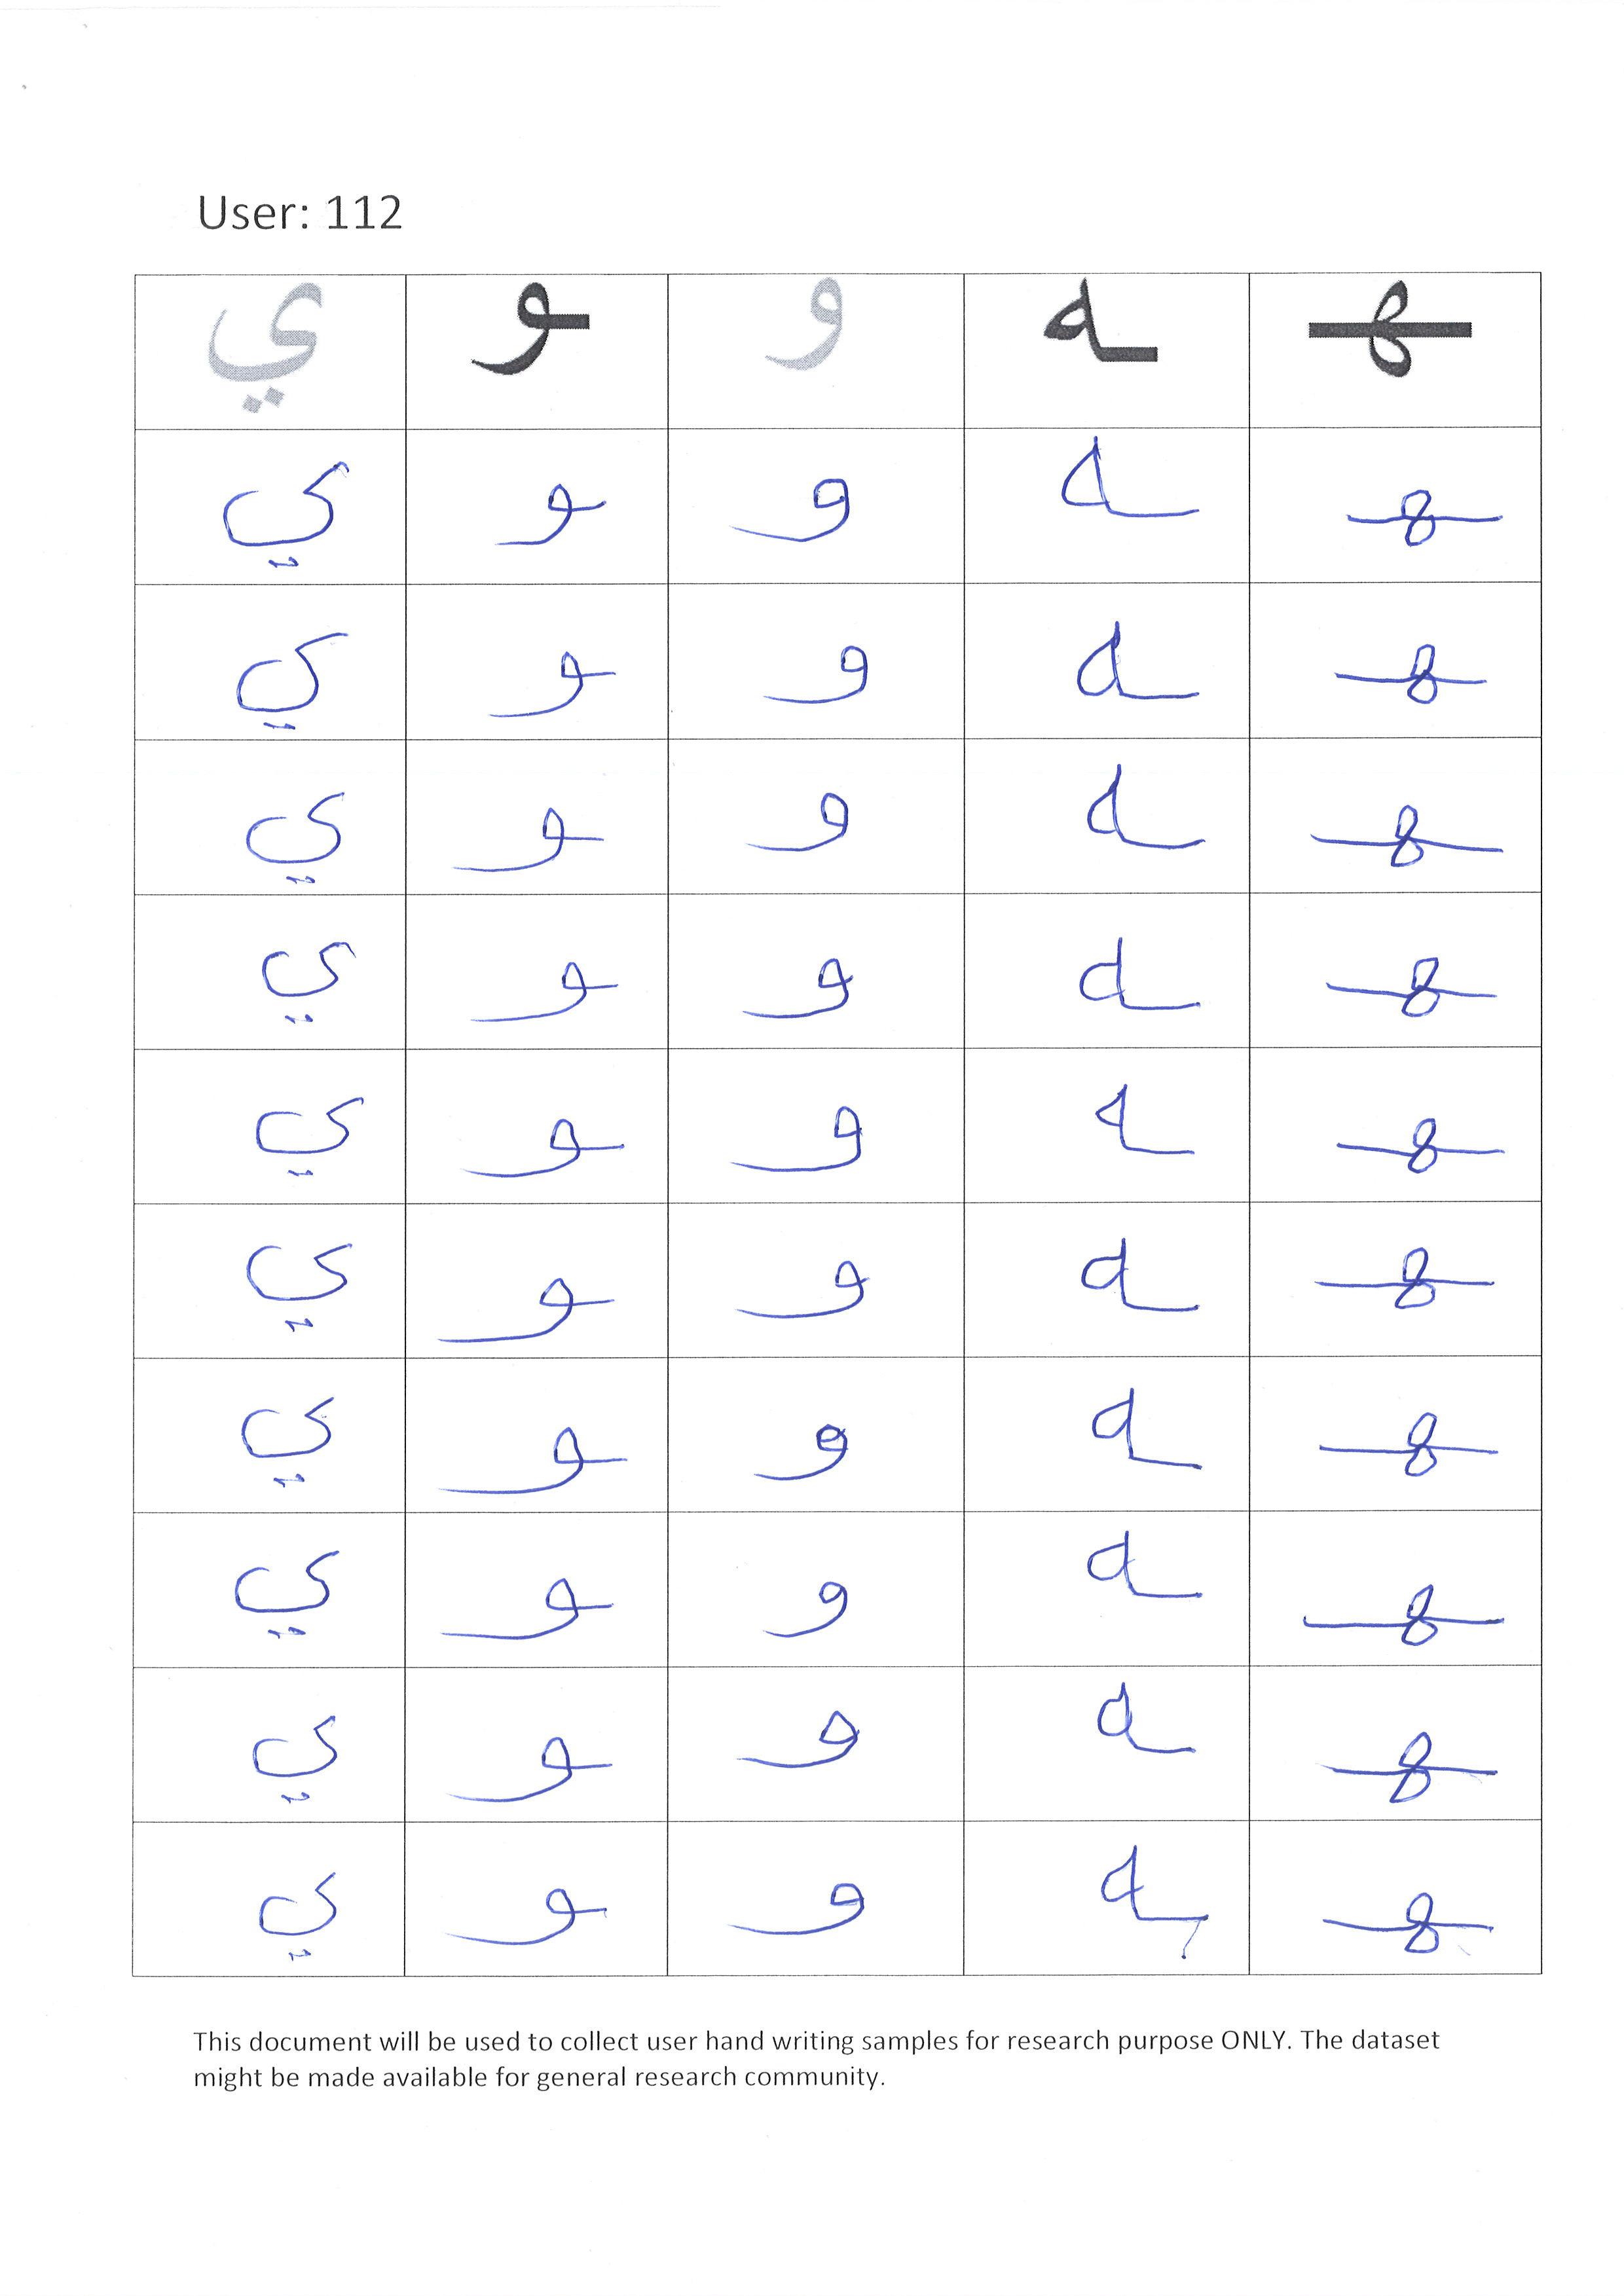 User: 112
ي ـو و ـه ـهـ
ي ـو و ـه ـهـ
ي ـو و ـه ـهـ
ي ـو و ـه ـهـ
ي ـو و ـه ـهـ
ي ـو و ـه ـهـ
ي ـو و ـه ـهـ
ي ـو و ـه ـهـ
ي ـو و ـه ـهـ
ي ـو و ـه ـهـ
ي ـو و ـه ـهـ
This document will be used to collect user hand writing samples for research purpose ONLY. The dataset
might be made available for general research community.